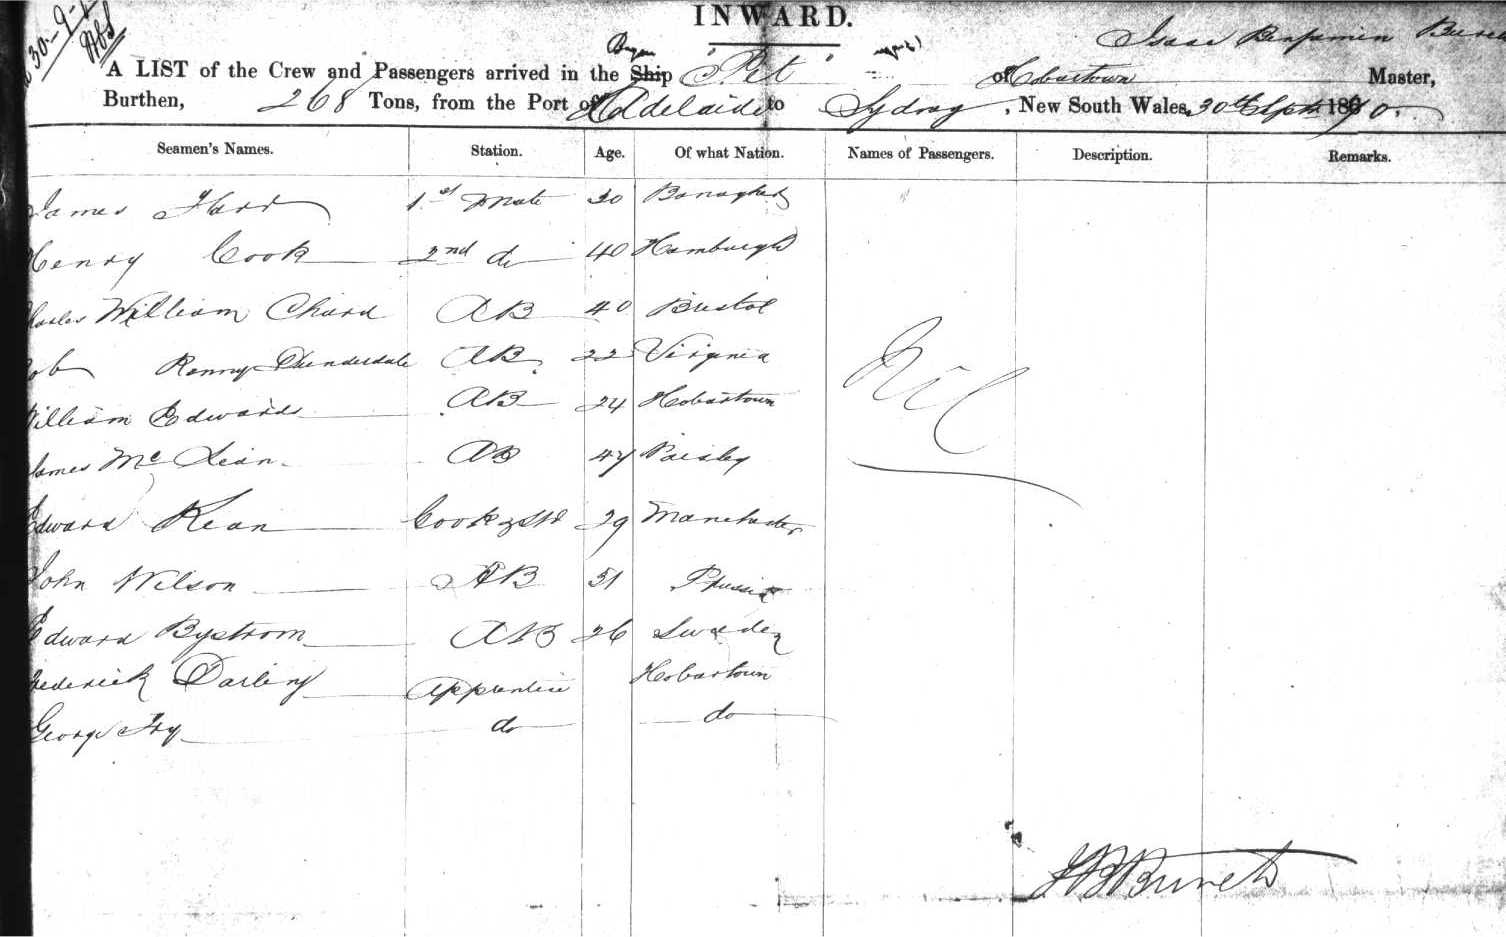 INWARD.
30-9-
Isaac Benjamin
A LIST of the Crew and Passengers arrived in the Ship "Pet" of Hobartown Master,
Burthen, 268 Tons, from the Port of Adelaide to Sydney, New South Wales, 30th Sept 1870.
Seamen's Names. Station. Age. Of what Nation. Names of Passengers. Description. Remarks.
James 1st Mate 30
Henry Cook 2nd do 40 Hamburgh
Charles William Chard AB 40 Bristol
AB 22 Virginia
William Edwards AB 24 Hobartown
James McLean AB 47 Paisley
Nil
Edward Kean Cook & Std 29 Manchester
John Wilson AB 51 Prussia
Edward Bystrom AB 26 Sweden
Frederick Darling Apprentice Hobartown
George Fry do do